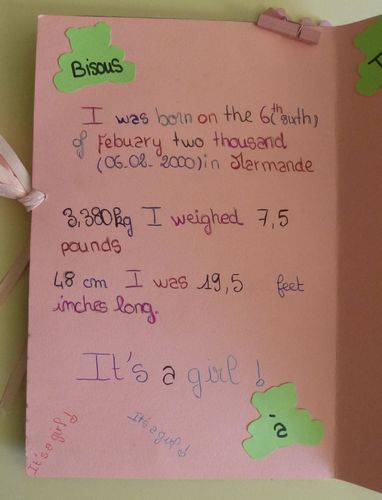 Bisous
I was born on the 6th (sixth)
of Febuary two thousand
(06-02-2000) in Marmande
3,380kg I weighed 7,5
pounds
48 cm I was 19,5 feet
inches long.
It's a girl !
It's a girl !
It's a girl !
à